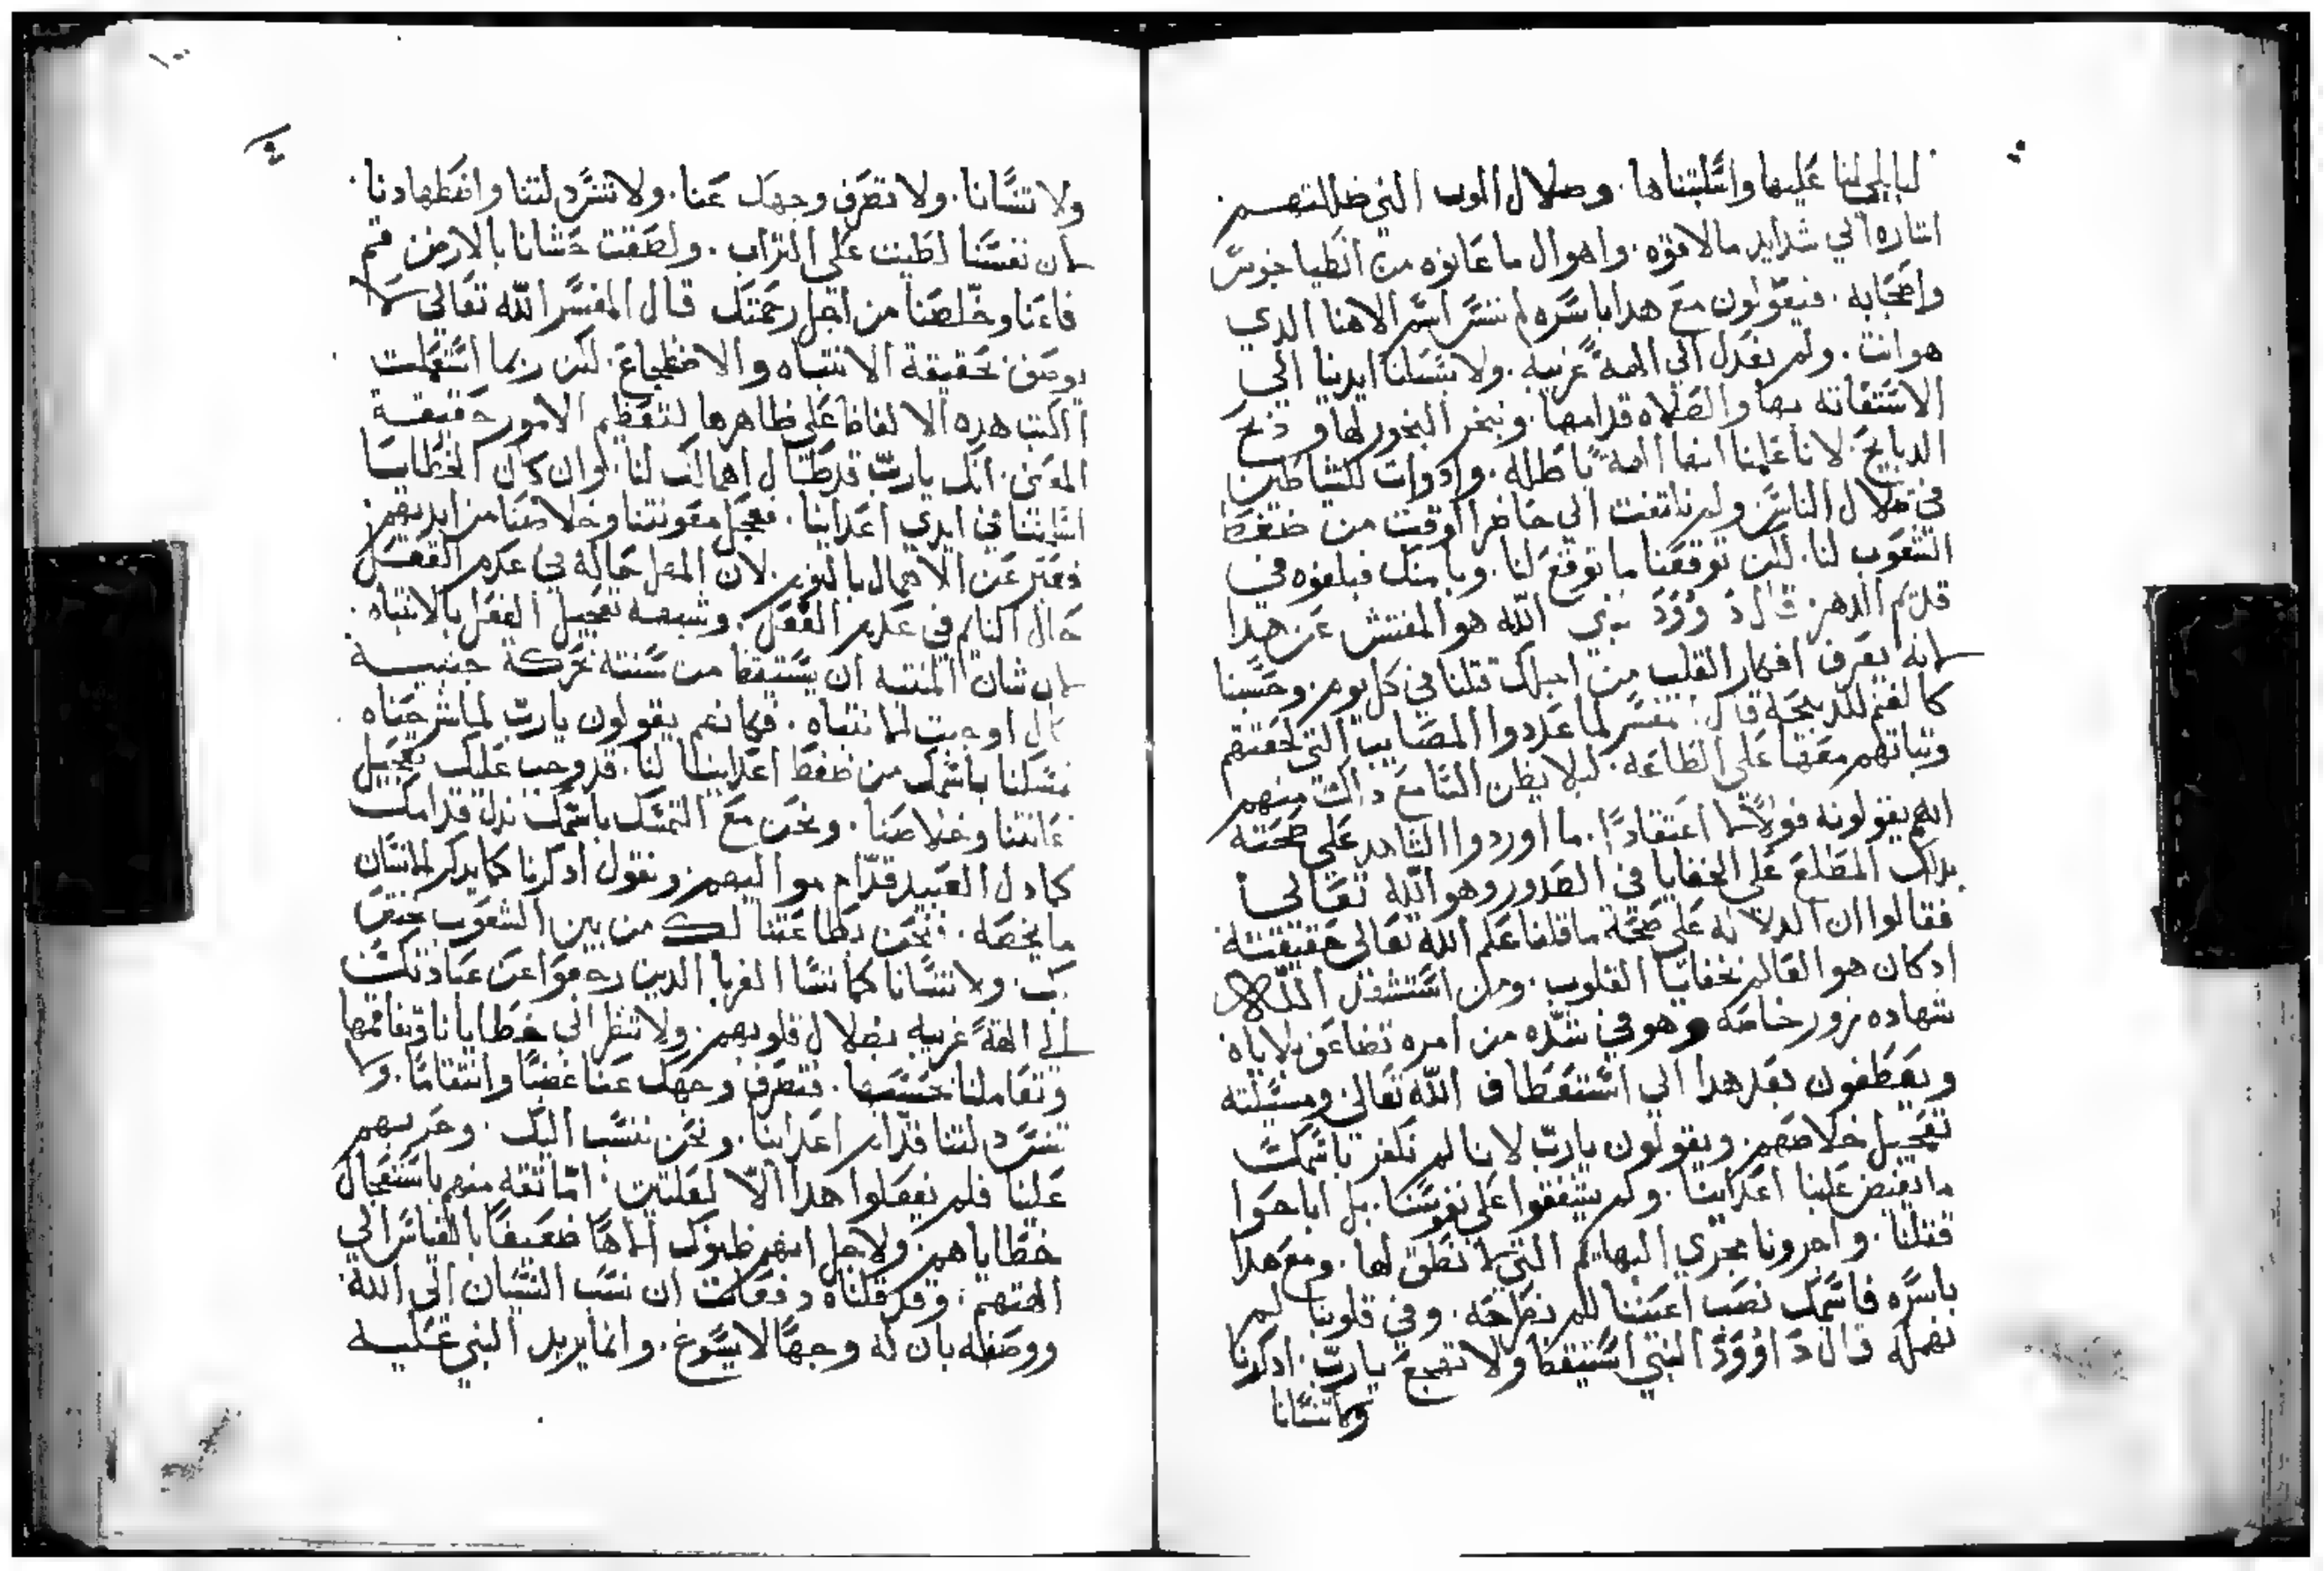 عليها واتلبناها. وضلال الموت التي ظللتهم
اشاره الي شدايد مالاقوه. واهوال ما عانوه من انطياخوس
واصحابه. فيقولون مع هدا باسره لم ننس اسم الاهنا الدي
هو انت. ولم نعدل الي الهة غريبه. ولا بسلنا ايدينا الي
الاستغاته بها والصلاه قدامها. ونبخر البخور لها و دبح
الدبايح. لانا علمنا انها الهة باطله. وادوات للشياطين
في ضلال الناس ولم نلتفت الي حاضر الوقت من ضغط
الشعوب لنا. لكن توقعنا ما توقع لنا. وبا منك فبلغوه في
قديم الدهر. قال داوود نبي الله هو المفتش عن هدا
لانه يعرف افكار القلب من اجلك قتلنا في كل يوم. وحسبنا
كالغنم للدبيحة قال المفسر لما عددوا المصايب التي لحقتهم
وتباتهم معها على الطاعه. ليلا يظن السامع داك منهم
انهم يقولونه قولا لا اعتقادا. ما اوردوا الشاهد علي صحته
بدلك المطلع على الخفايا في الصدور وهو الله تعالى
فقالوا ان الدلاله على صحة ما قلنا علم الله تعالى حقيقته
ادكان هو العالم بخفايا القلوب. ومن استشهد الله
شهاده زور خاصه وهو في شده من امره تضاعف بلاياه
ويعطفون بعد هدا الي استعطاف الله تعالى ومسلته
تعجيل خلاصهم. ويقولون يارب لانا لم نكفر باسمك
ما يقبض علينا اعداينا. ولم يشفقوا على نفوسنا. بل اباحوا
قتلنا. واجرونا مجري البهايم التي لا نطق لها. ومع هدا
باسره فاسمك نصب اعيننا لم نطرحه. وفي قلوبنا لم
نهمله قال داوود النبي استيقظ ولا تهجع يارب. ادكرنا
ولا تنسانا
ولا تنسانا. ولا تصرف وجهك عنا. ولا تنس دلتنا واضطهادنا.
لان نفسنا لطيت على التراب. ولصقت حشانا بالارض قم
فاعنا وخلصنا من اجل رحمتك قال المفسر الله تعالى لا
يوصف بحقيقة الانتباه والاضطجاع. لكن ربما استعملت
الكتب هده الالفاظ على ظاهرها لتعظيم الامور حقيقة
المعنى. انك يارب قد طال اهمالك لنا. وان كان الخطايا
اتلبتنا في ايدي اعداينا. فعجل معونتنا وخلاصنا من ايديهم
فعبر عن الاهمال بالنوم. لان المهمل حاله في عدم الفعل
حال النايم في عدم الفعل. وشبه تعجيل الفعل بالانتباه.
لان شان المنتبه ان يستيقظ من سنته بحركة
اوجبت له الانتباه. فكانهم يقولون يارب لما شرحناه
تمسكنا باسمك من ضغط اعداينا لنا. قد وجب عليك تعجيل
غاتتنا وخلاصنا. ونحن مع التمسك باسمك ندل قدامك
كما دل العبيد قدام مواليهم. ونقول ادكرنا كما يدكر الانسان
ما يخصه. فنحن بطاعتنا لك من بين الشعوب نختص
بك. ولا تنسانا كما تنسا الغربا الدين رجعوا عن عبادتك
الي الهة غريبه بضلال قلوبهم. ولا تنظر الى خطايانا وتفاقمها
وتعاملنا بحسبها. فتصرف وجهك عنا غضبا وانتقاما. ولا
تنس دلتنا قدام اعداينا. ونحن ننتسب اليك. وحربهم
علينا فلم يفعلوا هدا الا لعلتين. اما تقه منهم باستفحال
خطاياهم. ولاجل انهم ظنوك الاها ضعيفا بالقياس الي
الهتهم. وقد قلناه دفعات ان نسب النسيان الى الله
ووصفه بان له وجها لا يسوغ. وانما يريد النبي عليه